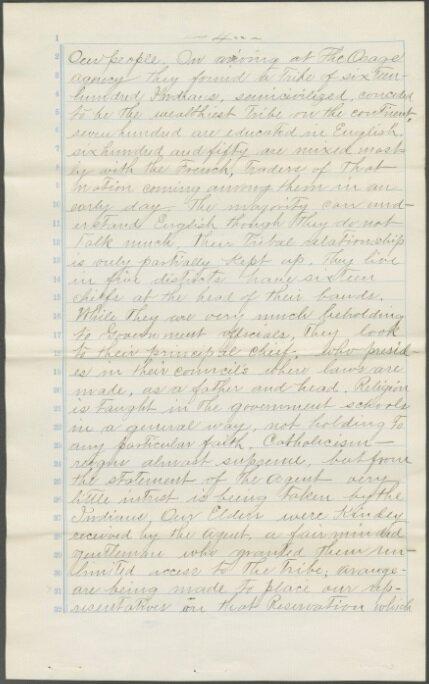 — 4 —
1
2 Our people. On arriving at The Osage
3 agency they found a tribe of sixteen-
4 hundred Indians, semicivilized, conceded
5 to be the wealthiest tribe on the continent,
6 seven hundred are educated in English,
7 six hundred and fifty are mixed most-
8 ly with the French, traders of That
9 nation coming among them in an
10 early day. The majority can und-
11 erstand English though they do not
12 talk much, Their tribal relationship
13 is only partially kept up. They live
14 in five districts have sixteen
15 chiefs at the head of their bands.
16 While they are very much beholding
17 to Government officials, they look
18 to their principal chief, who presid-
19 es in their councils where laws are
20 made, as a father and head. Religion
21 is taught in the government schools
22 in a general way, not holding to
23 any particular faith. Catholicism
24 reigns almost supreme, but from
25 the statement of the agent very
26 little intrest is being taken by the
27 Indians, Our Elders were Kindly
28 received by the agent, a fair minded
29 gentleman who granted them un-
30 limited access to the tribe; arange-
31 are being made to place our rep-
32 resentatives on that Reservation which